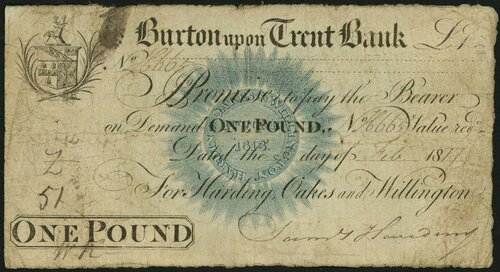 Burton upon Trent Bank £1
No
I Promise to pay the Bearer
on Demand ONE POUND. No Value recd
1813
Dated the day of Feb 1817
For Harding, Oakes and Willington
Z
51
ONE POUND
Harding